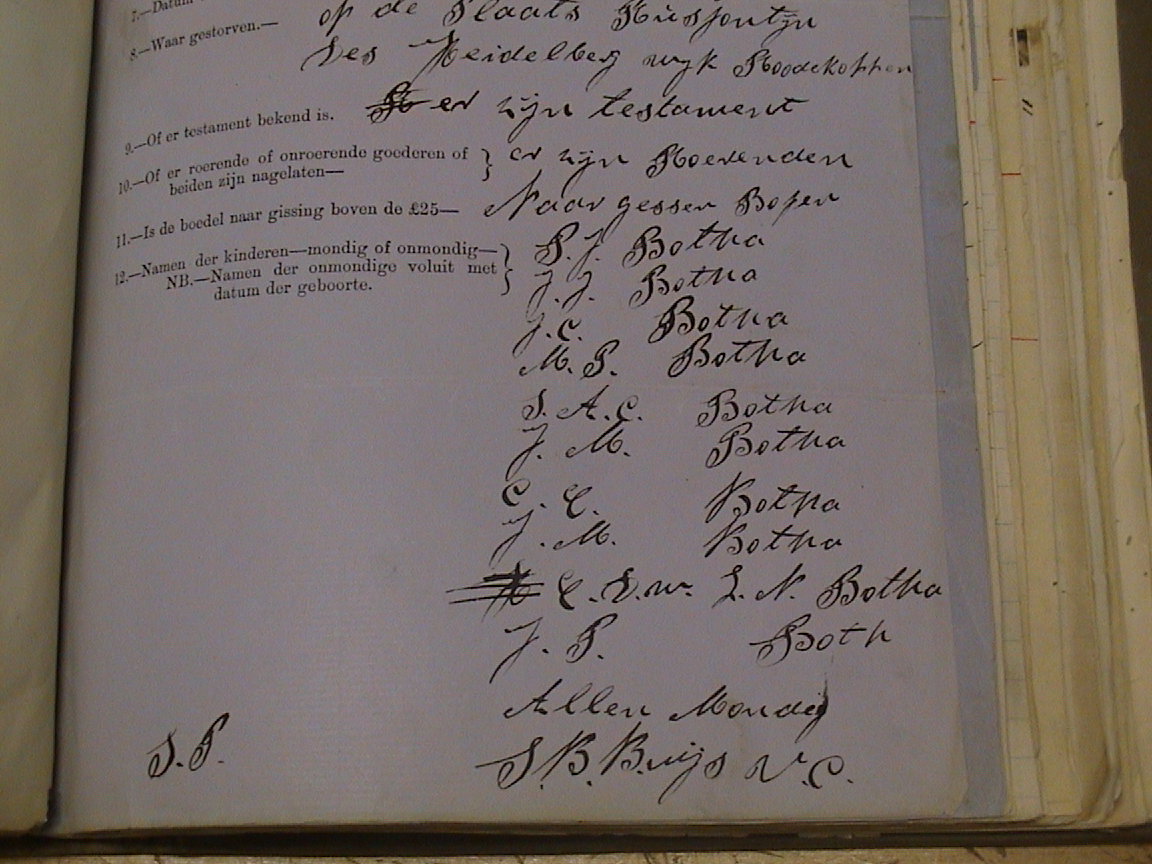 7.—Datum
8.—Waar gestorven.— op de Plaats Rusfontijn
Des Heidelberg wyk Roodekoppen
9.—Of er testament bekend is. er zijn testament
10.—Of er roerende of onroerende goederen of beiden zijn nagelaten— } er zijn Roerenden
11.—Is de boedel naar gissing boven de £25— Naar gessen Bofen
12.—Namen der kinderen—mondig of onmondig—
NB.—Namen der onmondige voluit met
datum der geboorte.
P. J. Botha
J. J. Botha
J. C. Botha
M. P. Botha
S. A. C. Botha
J. M. Botha
C. C. Botha
J. M. Botha
L. N. Botha
J. P. Both
Allen Mondig
S. P. S. B. Buijs V. C.